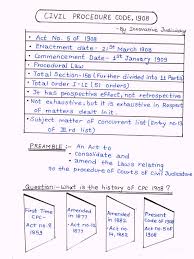 CIVIL PROCEDURE CODE, 1908
- By Innovative Judiciary
Act No. 5 of 1908
Enactment date - 21st March 1908
Commencement Date - 1st January 1909
Procedural Law
Total Section - 158 (further divided into 11 Parts)
Total order I-LI (51 orders)
It has prospective effect, not retrospective
Not exhaustive, but it is exhaustive in Respect
of matters dealt in it.
Subject matter of concurrent list (Entry No-13
of III rd list)
PREAMBLE :- An Act to
consolidate and
amend the Laws relating
to the procedure of Courts of Civil Judicature
Question - What is the history of CPC 1908 ?
First Time
CPC -
Act no. 8
1859
Amended in
1877
Act no-10
1877
Amended
in 1882
Act no-14
1882
Present
Code of
1908
Act no-5
1908